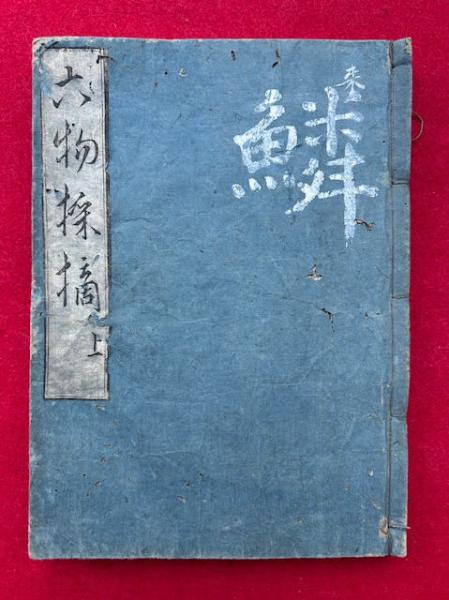 六物採摘上
鱗